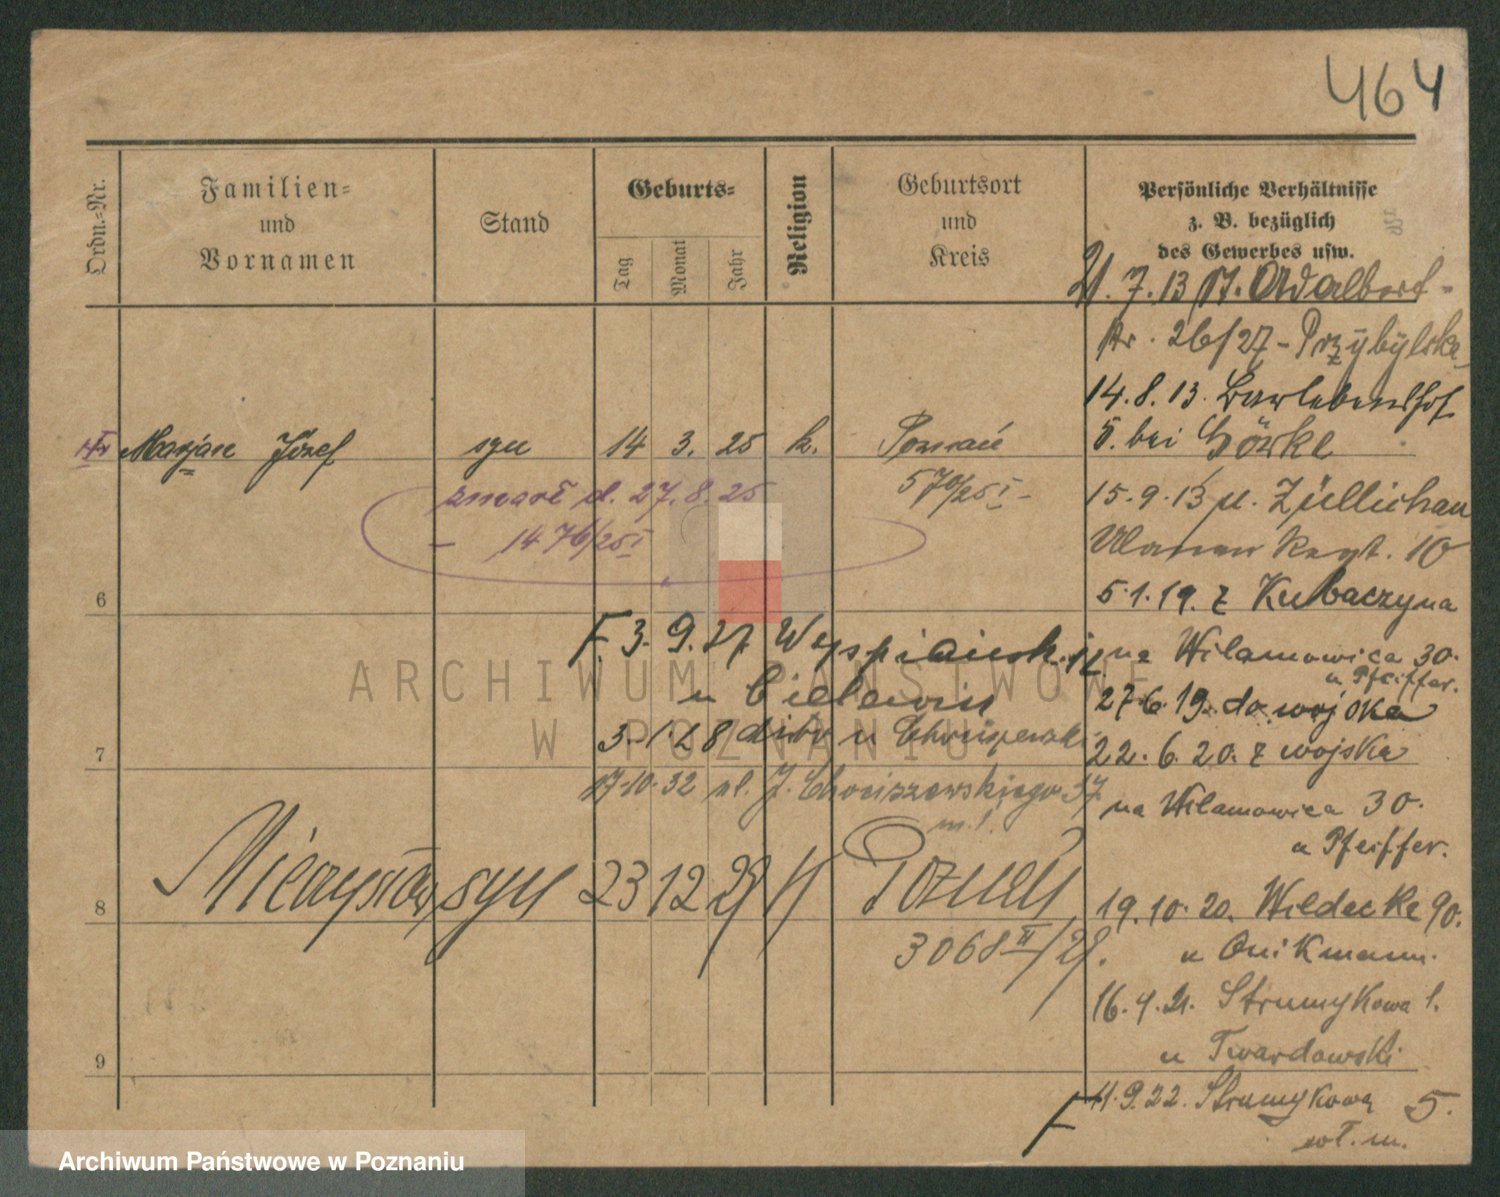 464
Ordn.=Nr.
Familien=
und
Vornamen
Stand
Geburts=
Tag
Monat
Jahr
Religion
Geburtsort
und
Kreis
Persönliche Verhältnisse
z. B. bezüglich
des Gewerbes usw.
21. 7. 13 Adalbert-
26/27 - Przybylska
14. 8. 13. Barlebenshof
5. bei Görke
15. 9. 13 n. Züllichau
Ulanen Regt. 10
5. 1. 19. z Kubaczyna
na Wilamowica 30.
u Pfeiffer.
27 6. 19. do wojska
22. 6. 20. z wojska
na Wilamowica 30.
u Pfeiffer.
19. 10. 20. Wildecke 90.
u
16. 4. 21. Strumykowa 1.
u Twardowski
F 11. 9. 22. Strumykowa 5.
wł. m.
Marjan Józef syn 14 3. 25 k. Poznań
570/25 I -
zmarł d. 27. 8. 25
- 1476/25 I
6
F. 3. 9. 27 Wyspiańsk. 12
u
7
3. 1. 28 u
17.10.32 ul. J. Chociszewskiego 37
m. 1.
8
Mieczysław syn 23 12 29 k Poznań
3068 II/29.
9
ARCHIWUM PAŃSTWOWE
W POZNANIU
Archiwum Państwowe w Poznaniu